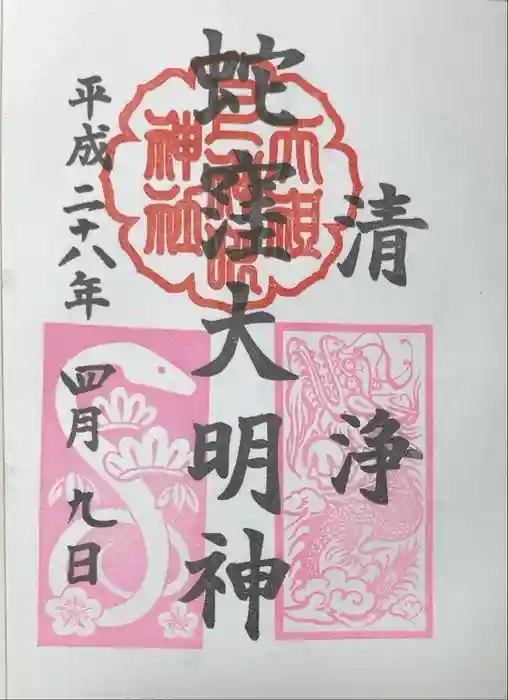 清浄
蛇窪大明神
平成二十八年 四月 九日
天祖
神社